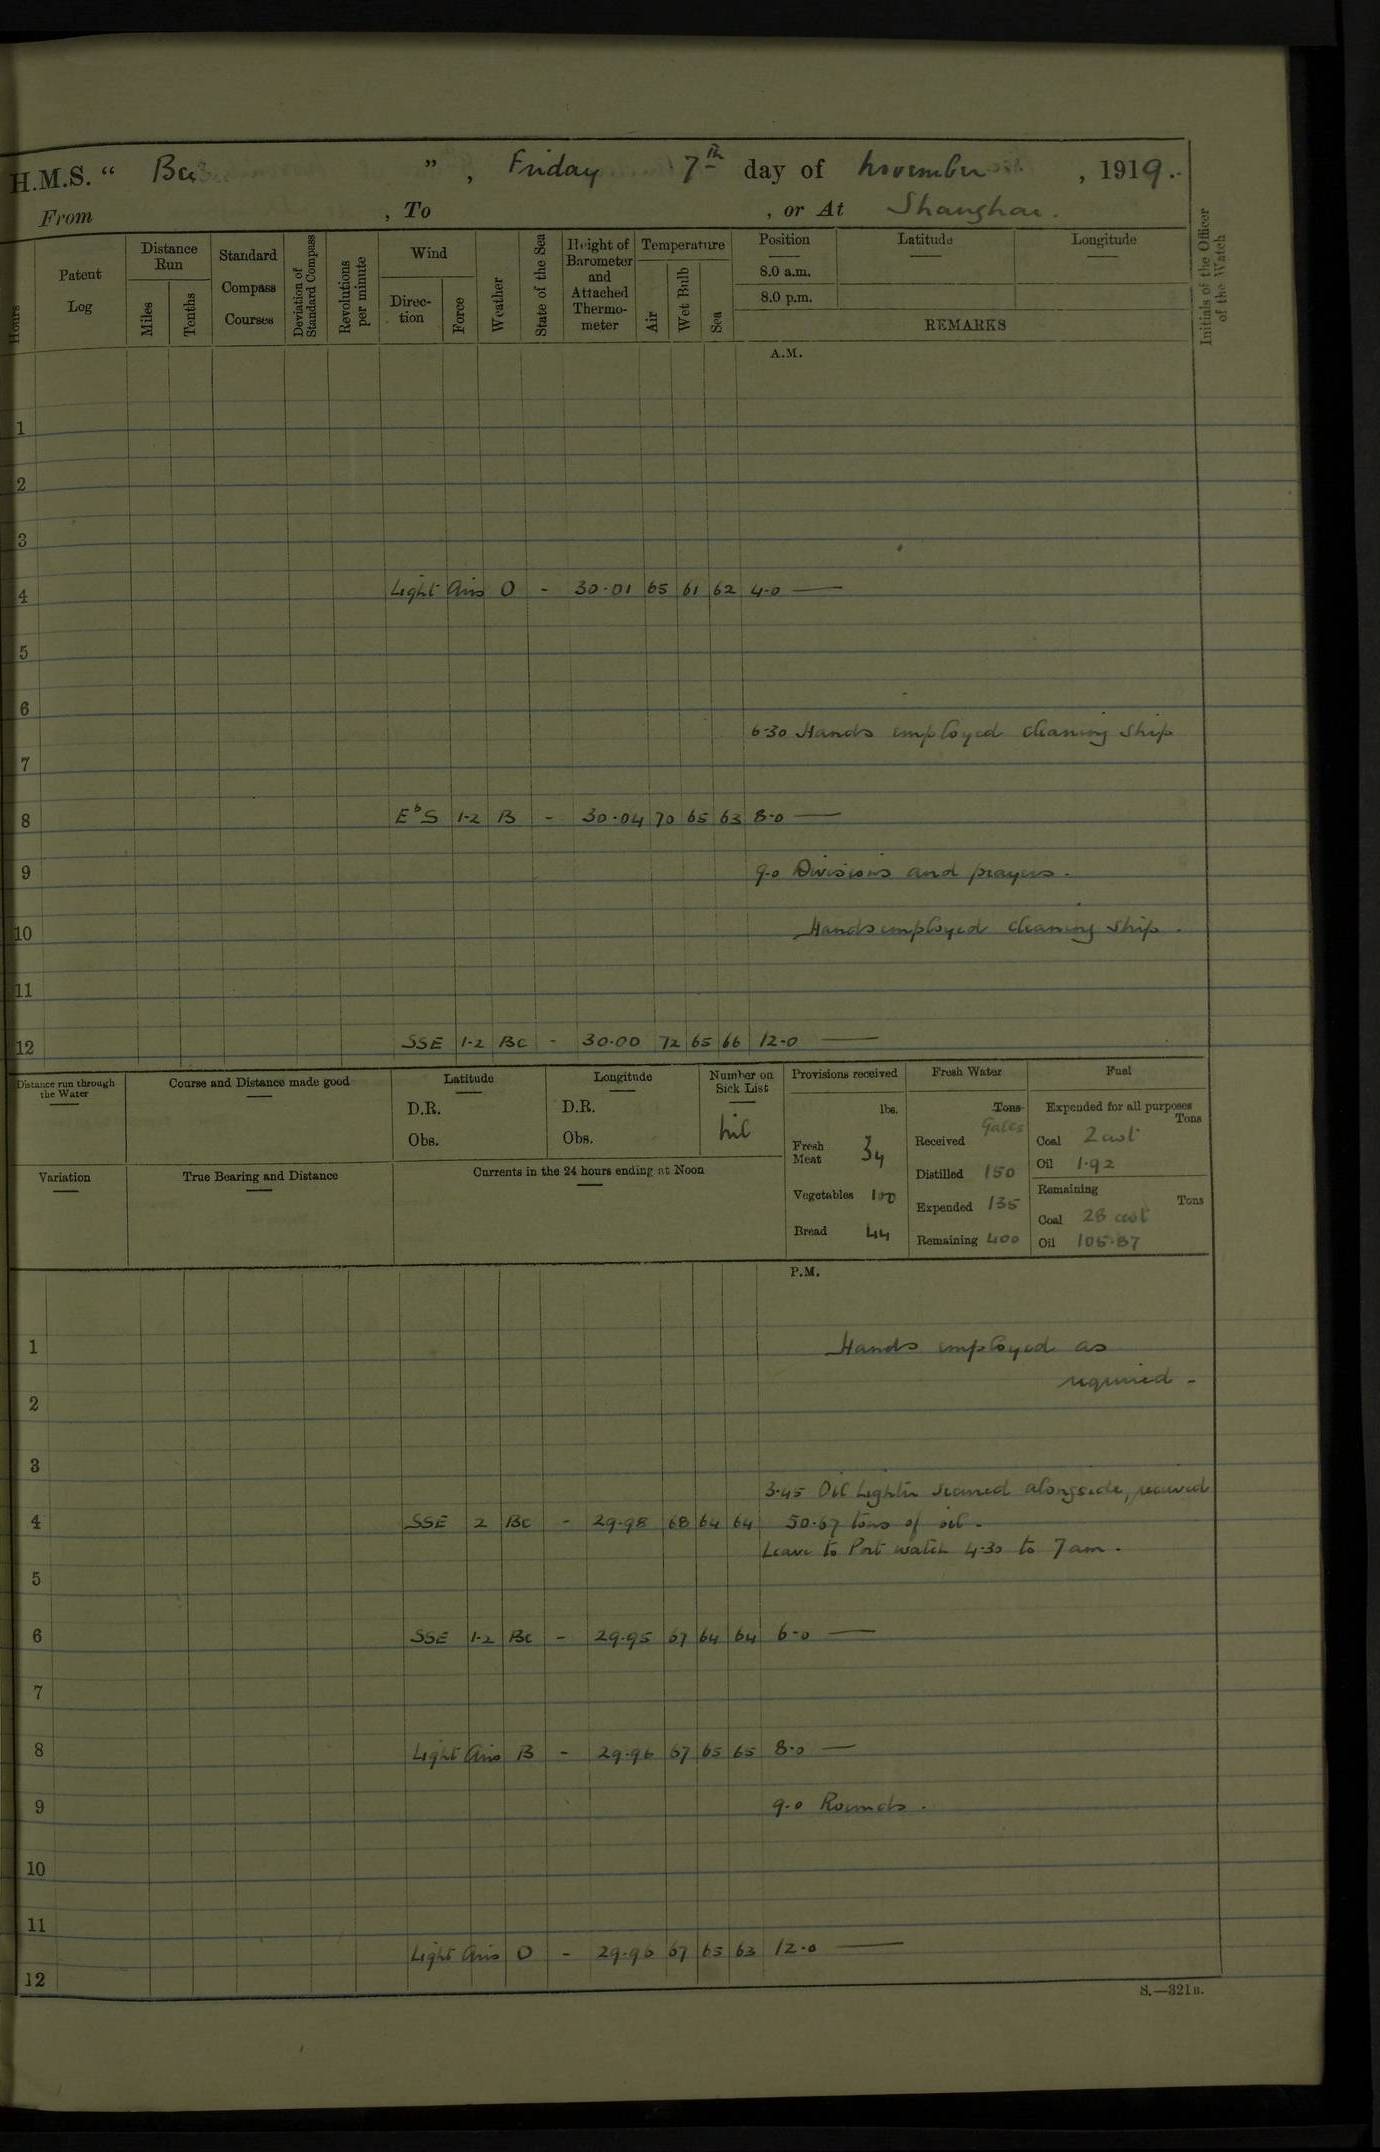 H.M.S. “ Bee ” , Friday 7th day of November , 1919.
From , To , or At Shanghai.
Hours
Patent Log
Distance Run
Miles
Tenths
Standard Compass Courses
Deviation of Standard Compass
Revolutions per minute
Wind
Direc-tion
Force
Weather
State of the Sea
Height of Barometer and Attached Thermo-meter
Temperature
Air
Wet Bulb
Sea
Position
8.0 a.m.
8.0 p.m.
Latitude
Longitude
REMARKS
Initials of the Officer of the Watch
A.M.
1
2
3
4 Light Airs O - 30.01 65 61 62 4.0 —
5
6
6.30 Hands employed cleaning ship
7
8 E b S 1-2 B - 30.04 70 65 63 8.0 —
9 9.0 Divisions and prayers.
10 Hands employed cleaning ship.
11
12 SSE 1-2 BC - 30.00 72 65 66 12.0 —
Distance run through the Water
Course and Distance made good
Latitude
D.R.
Obs.
Longitude
D.R.
Obs.
Number on Sick List
nil
Provisions received
lbs.
Fresh Meat 34
Vegetables 100
Bread 44
Fresh Water
Tons
Galls
Received
Distilled 150
Expended 135
Remaining 400
Fuel
Expended for all purposes
Tons
Coal 2 cwt
Oil 1.92
Remaining
Tons
Coal 28 cwt
Oil 105.87
Variation
True Bearing and Distance
Currents in the 24 hours ending at Noon
P.M.
1 Hands employed as
required -
2
3
3.45 Oil Lighter secured alongside, received
4 SSE 2 BC - 29.98 68 64 64 50.67 tons of oil -
Leave to Port watch 4.30 to 7 am.
5
6 SSE 1-2 BC - 29.95 67 64 64 6.0 —
7
8 Light Airs B - 29.96 67 65 65 8.0 —
9 9.0 Rounds.
10
11
Light Airs O - 29.96 67 65 63 12.0 —
12
S.—321B.